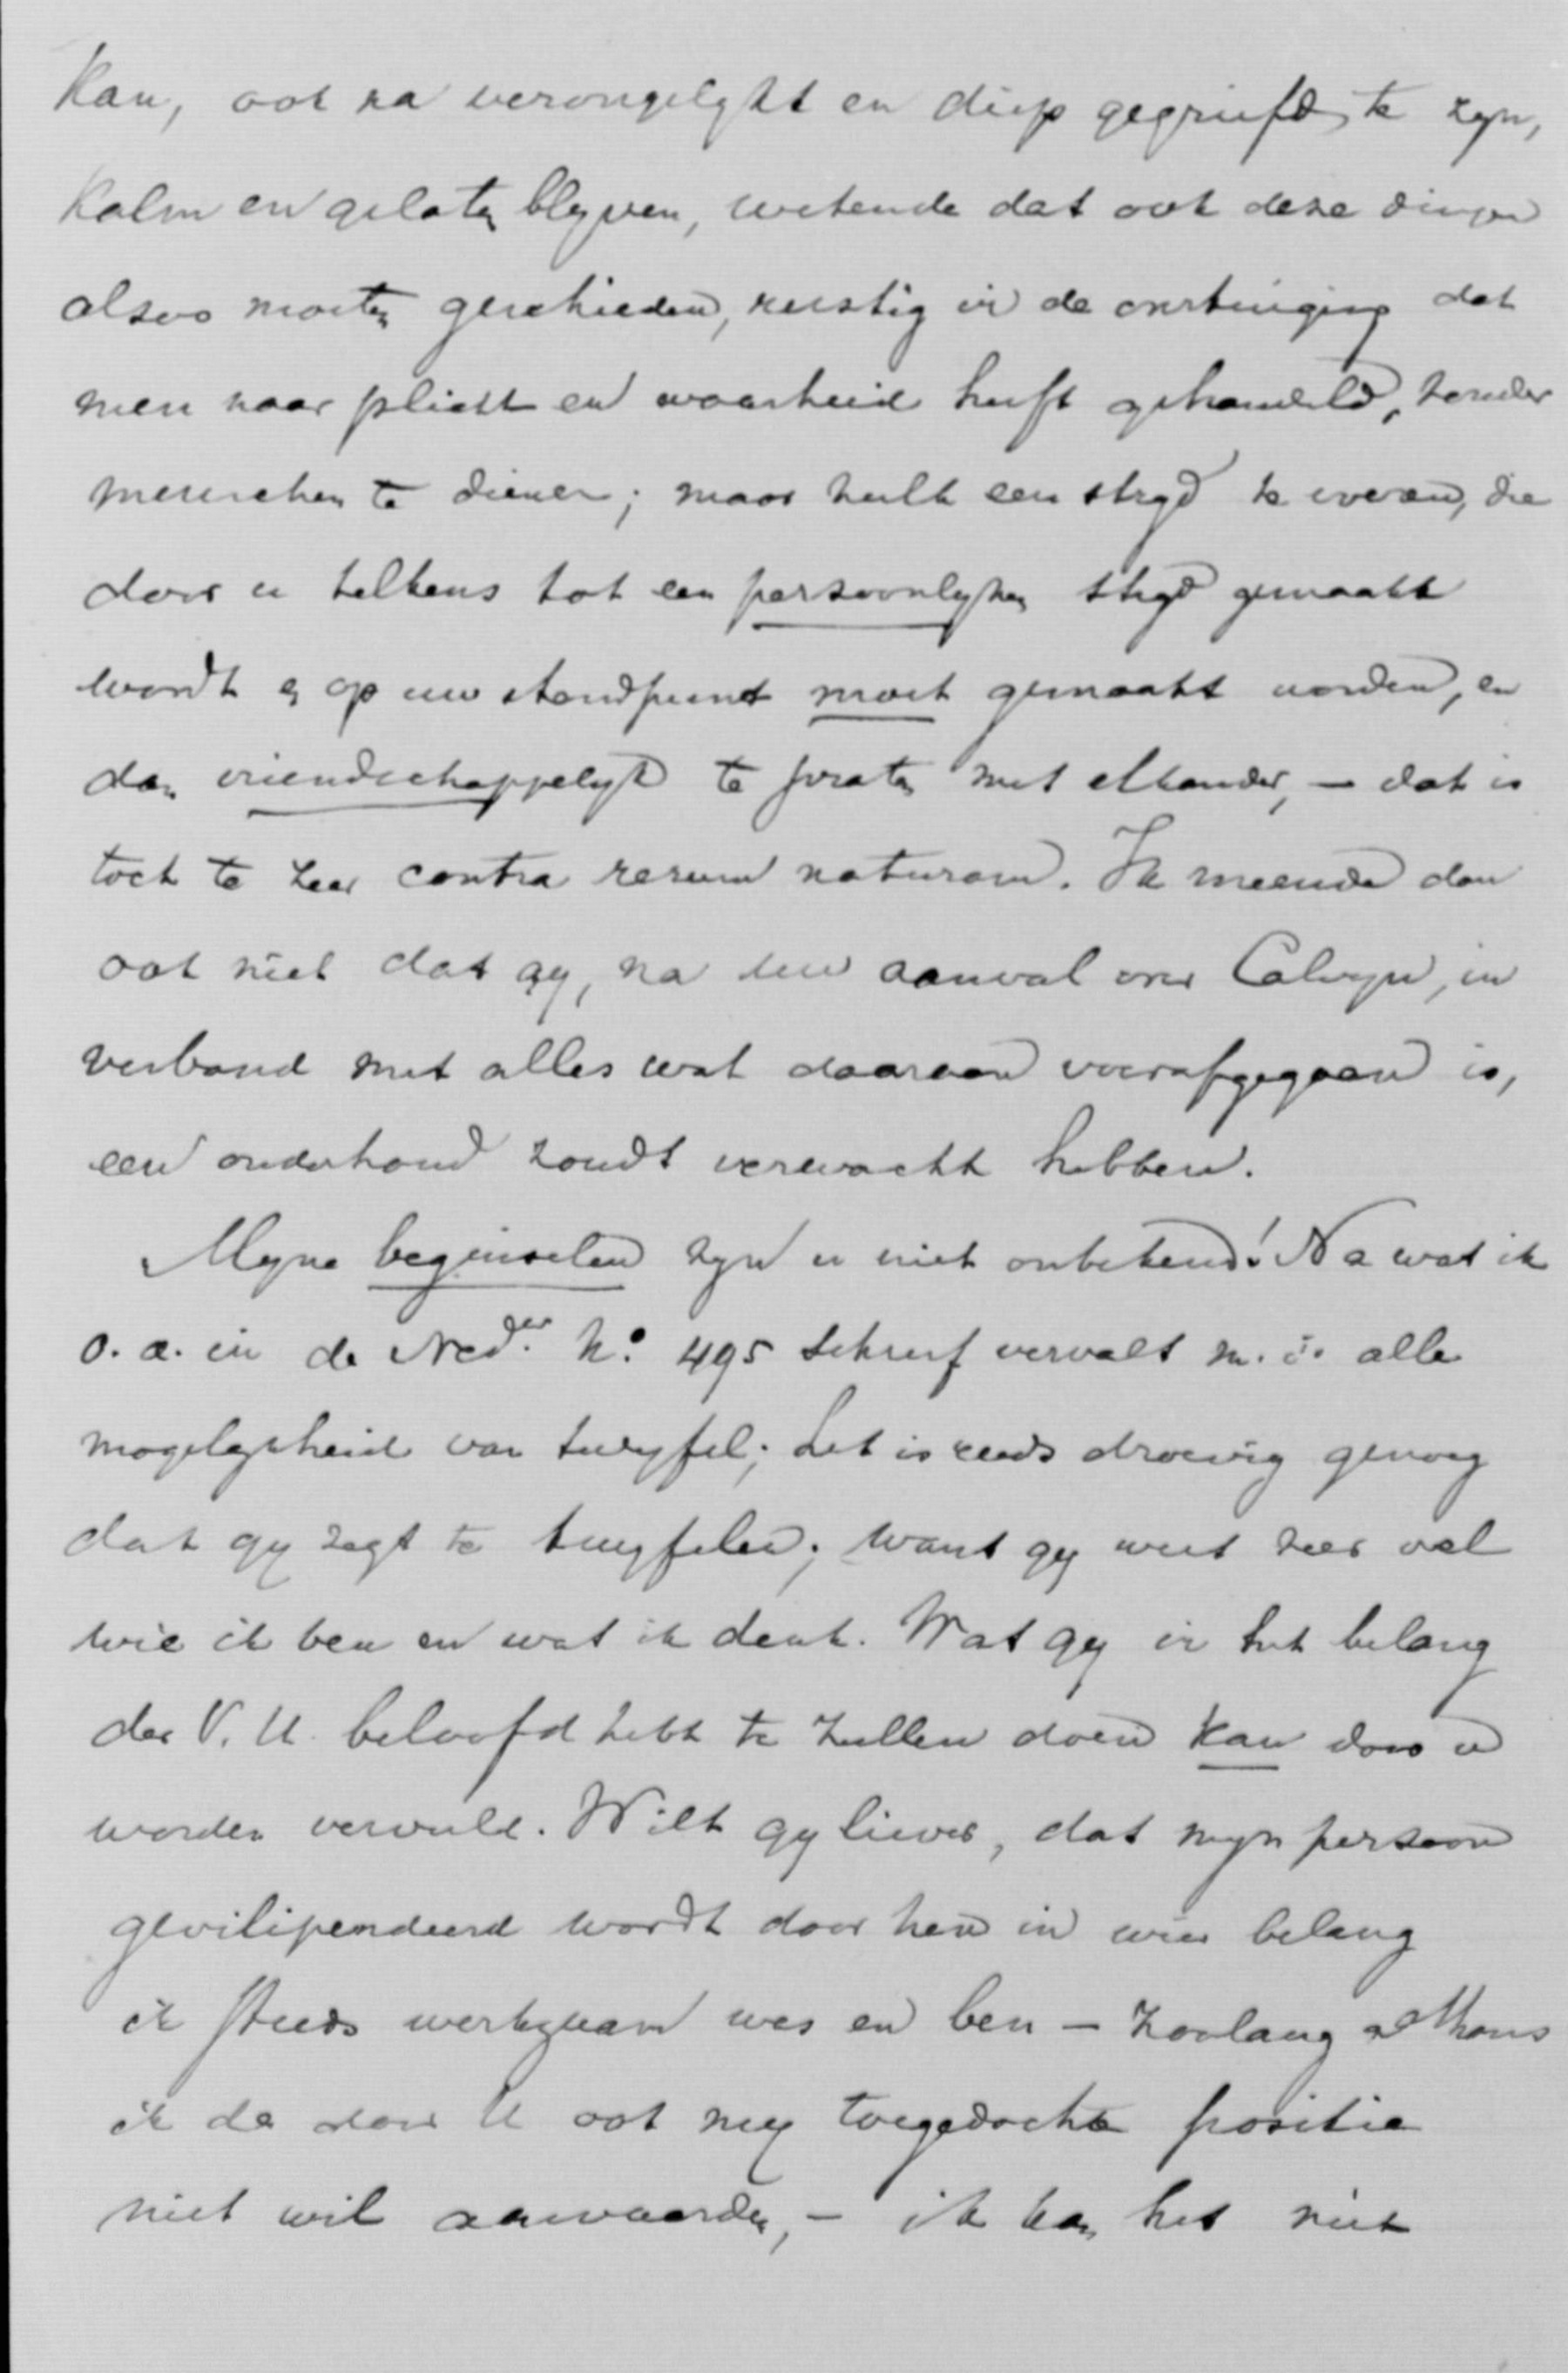 kan, ook na verongelykt en diep gegriefd te zyn,
kalm en gelaten blyven, wetende dat ook deze dingen
alzoo moeten geschieden, rustig in de overtuiging dat
men naar plicht en waarheid heeft gehandeld, zonder
menschen te dienen; maar zulk een stryd te voeren, die
door u telkens tot een persoonlyken stryd gemaakt
wordt en op uw standpunt moet gemaakt worden, en
dan vriendschappelyk te praten met elkander, – dat is
toch te zeer contra rerum naturam. Ik meende dan
ook niet dat gy, na uw aanval over Calvyn, in
verband met alles wat daaraan voorafgegaan is,
een onderhoud zoudt verwacht hebben.
Myne beginselen zyn u niet onbekend! Na wat ik
o.a. in de Neder. No. 495 schreef vervalt m.i. alle
mogelykheid van twyfel; het is reeds droevig genoeg
dat gy zegt te twyfelen; want gy weet zeer wel
wie ik ben en wat ik denk. Wat gy in het belang
der V.U. beloofd hebt te zullen doen kan door u
worden vervuld. Wilt gy liever, dat myn persoon
gevilipendeerd wordt door hen in wier belang
ik steeds werkzaam was en ben – zoolang althans
ik de door U ook my toegedachte positie
niet wil aanvaarden, – ik kan het niet